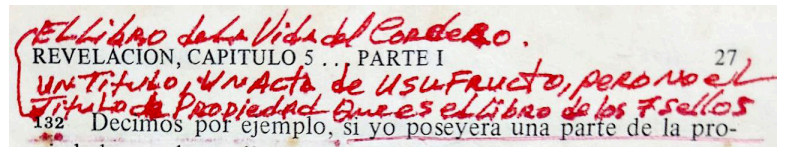 El Libro de la Vida del Cordero.
REVELACION, CAPITULO 5 . . . PARTE I 27
Un Titulo, un Acta de Usufructo, pero no el
Titulo de Propiedad que es el Libro de los 7 sellos
132 Decimos por ejemplo, si yo poseyera una parte de la pro-